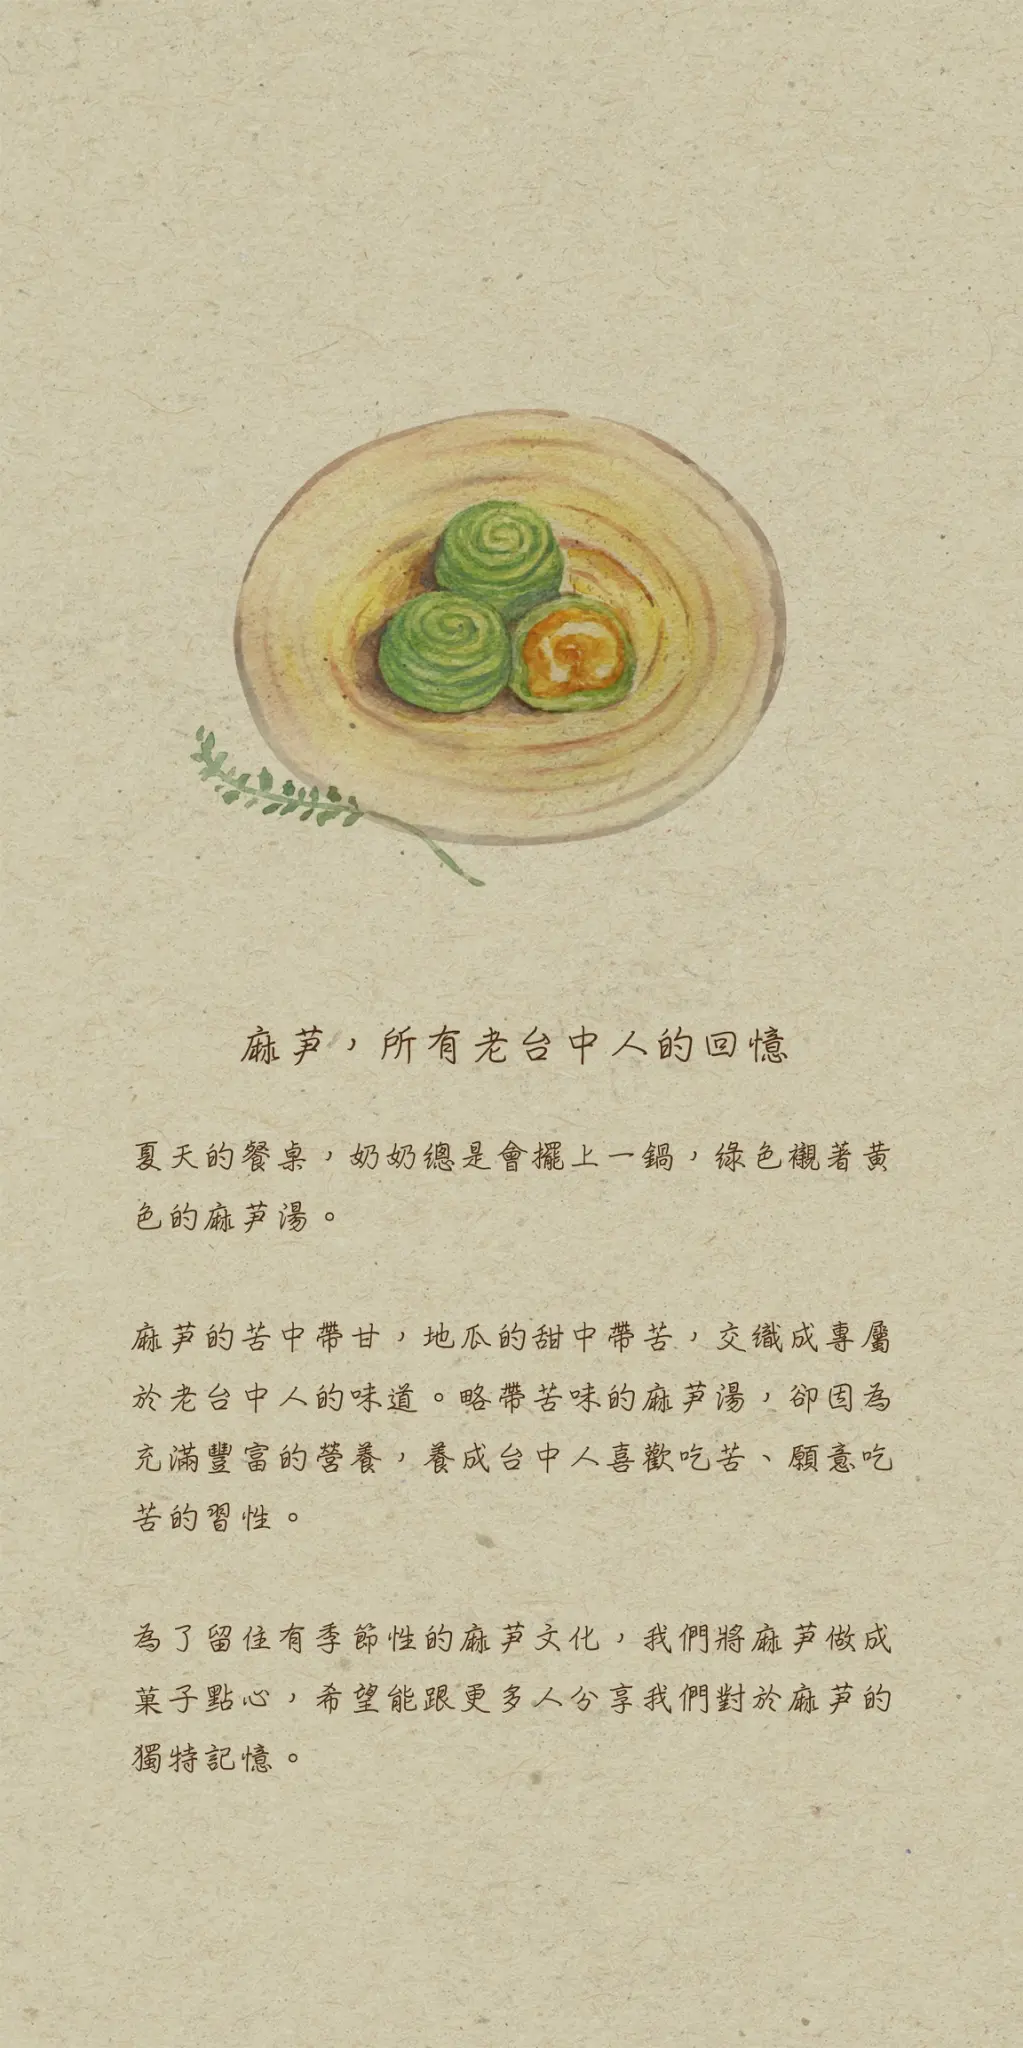 麻芛，所有老台中人的回憶
夏天的餐桌，奶奶總是會擺上一鍋，綠色襯著黃
色的麻芛湯。
麻芛的苦中帶甘，地瓜的甜中帶苦，交織成專屬
於老台中人的味道。略帶苦味的麻芛湯，卻因為
充滿豐富的營養，養成台中人喜歡吃苦、願意吃
苦的習性。
為了留住有季節性的麻芛文化，我們將麻芛做成
菓子點心，希望能跟更多人分享我們對於麻芛的
獨特記憶。